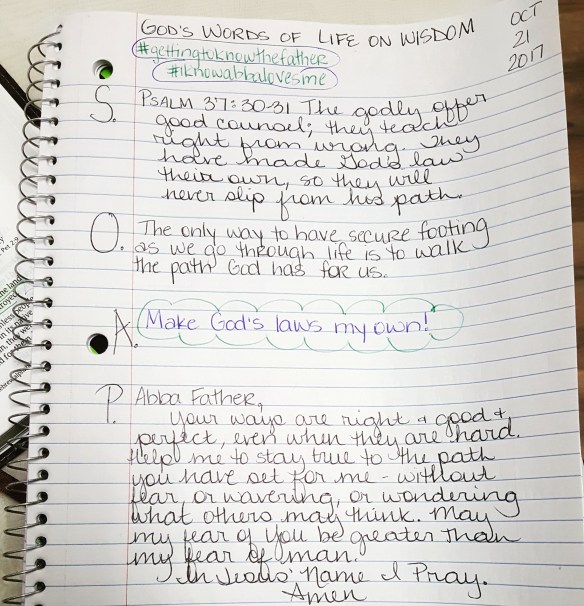 GOD'S WORDS OF LIFE ON WISDOM
OCT
21
2017
#gettingtoknowthefather
#iknowabbalovesme
S. PSALM 37:30-31 The godly offer
good counsel; they teach
right from wrong. They
have made God's law
their own, so they will
never slip from his path.
O. The only way to have secure footing
as we go through life is to walk
the path God has for us.
A. Make God's laws my own!
P. Abba Father,
Your ways are right & good &
perfect, even when they are hard.
Help me to stay true to the path
you have set for me - without
fear, or wavering, or wondering
what others may think. May
my fear of You be greater than
my fear of man.
In Jesus' Name I Pray.
Amen